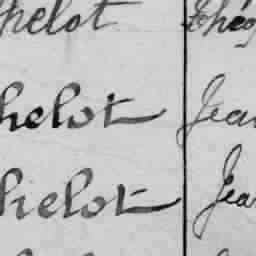 helot Théo
helot Jean
helot Jea